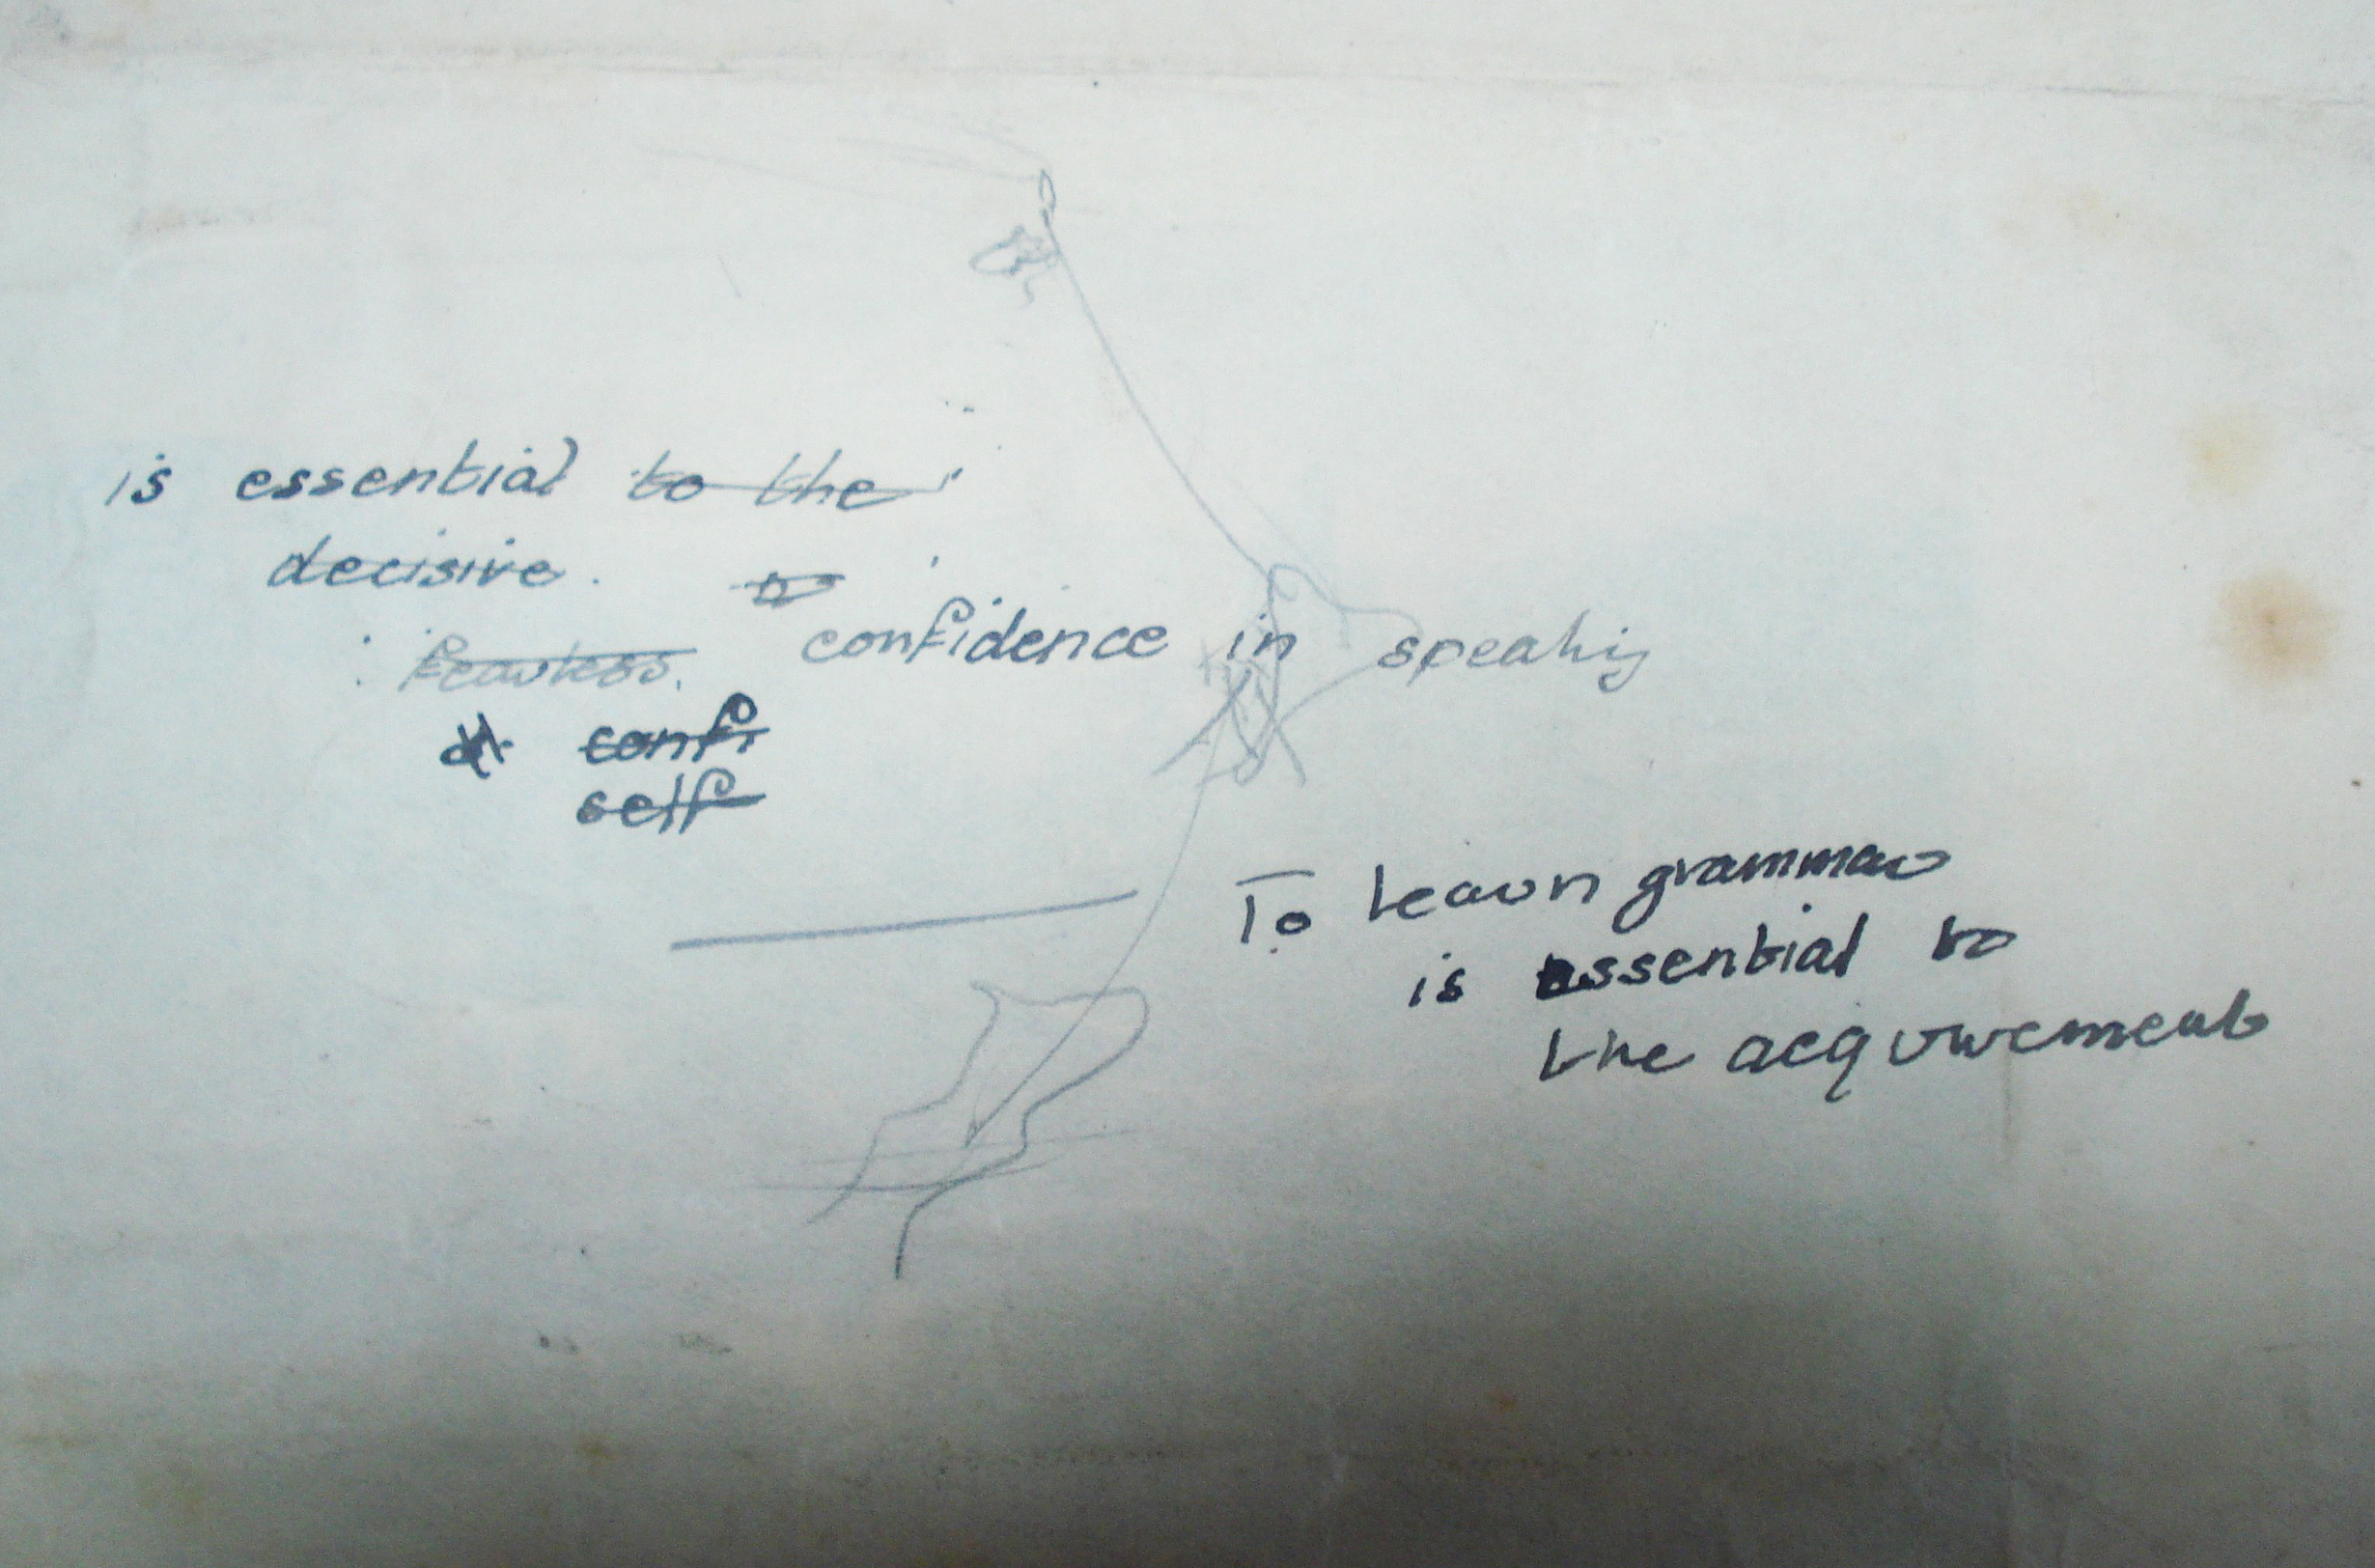 is essential to the
decisive.
fearless. confidence in speaking
confi
self
To learn grammar
is essential to
the acquirement